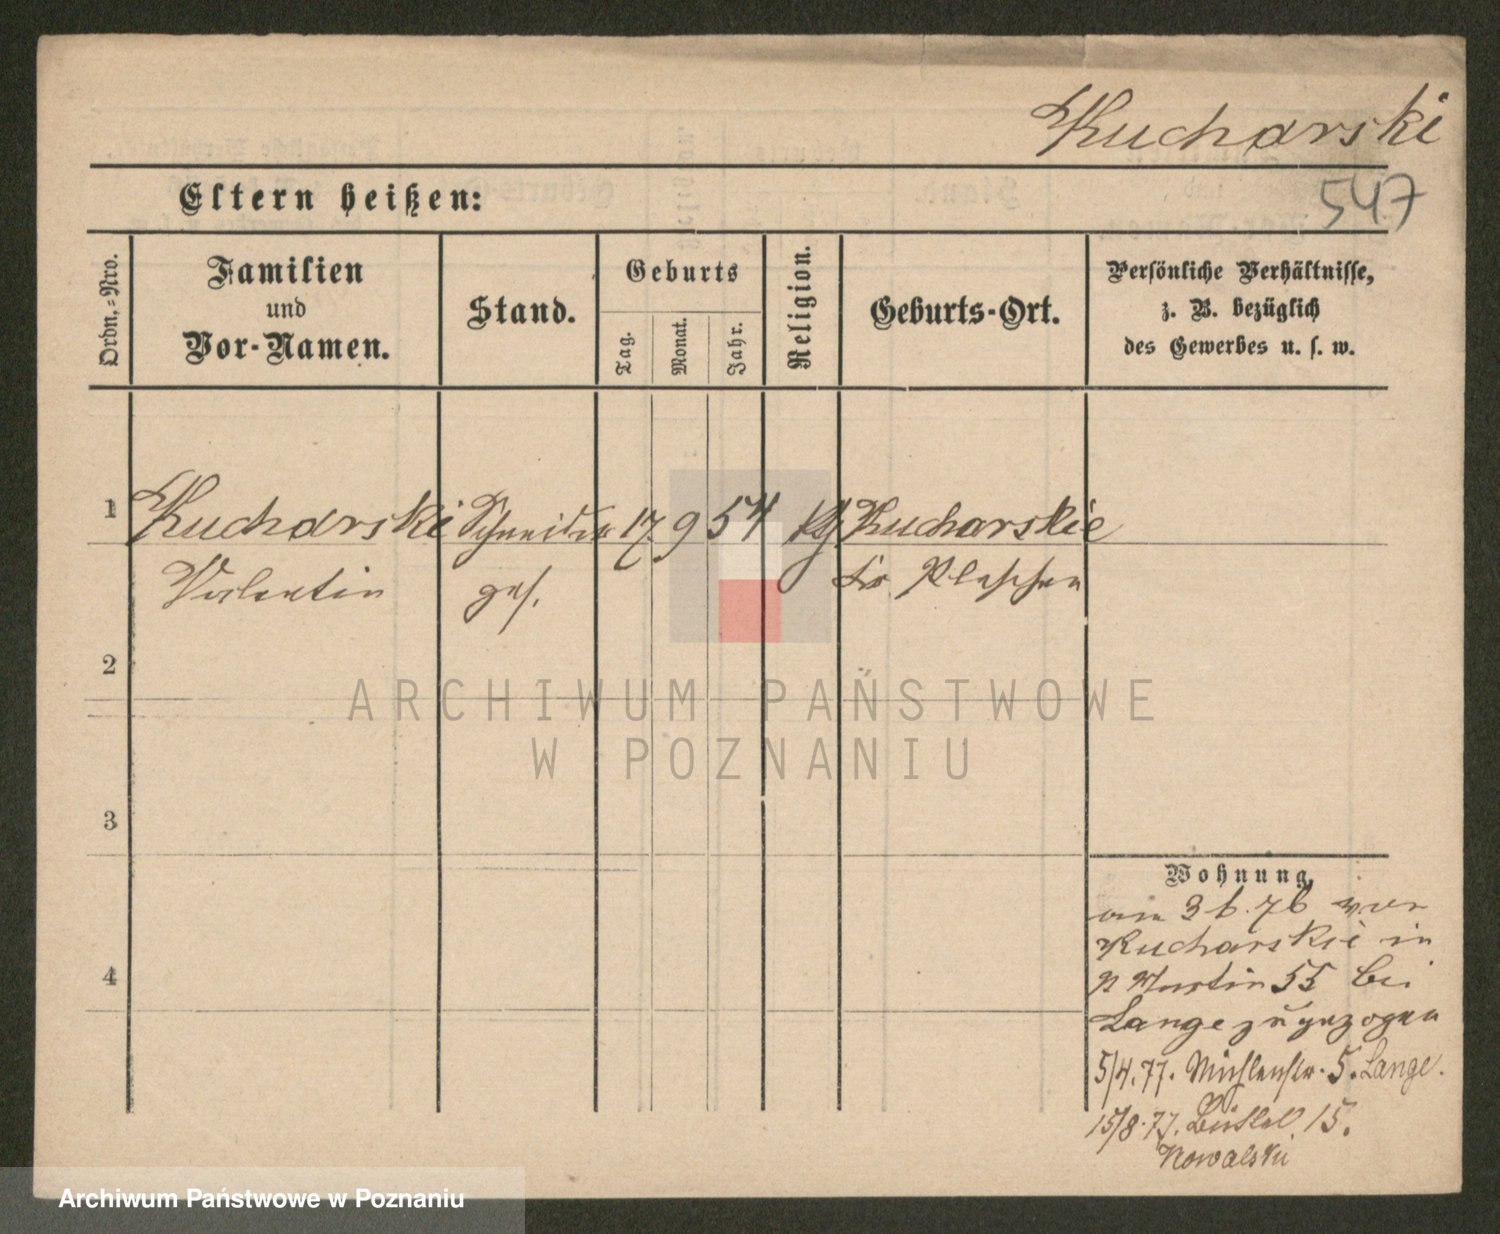 Kucharski
547
Eltern heißen:
Ordn.-Nro.
Familien
und
Vor-Namen.
Stand.
Geburts
Tag.
Monat.
Jahr.
Religion.
Geburts-Ort.
Persönliche Verhältnisse,
z. B. bezüglich
des Gewerbes u. s. w.
1 Kucharski Schneider 17. 9 54 Kucharskie
Valentin ges. Kr. Pleschen
2
ARCHIWUM PAŃSTWOWE
W POZNANIU
3
Wohnung
am 3 6. 76 von
Kucharskie in
Martin 55 bei
Lange zugezogen
4
5/4. 77. Mühlenstr. 5. Lange.
15/8. 77. 15.
Kowalski
Archiwum Państwowe w Poznaniu